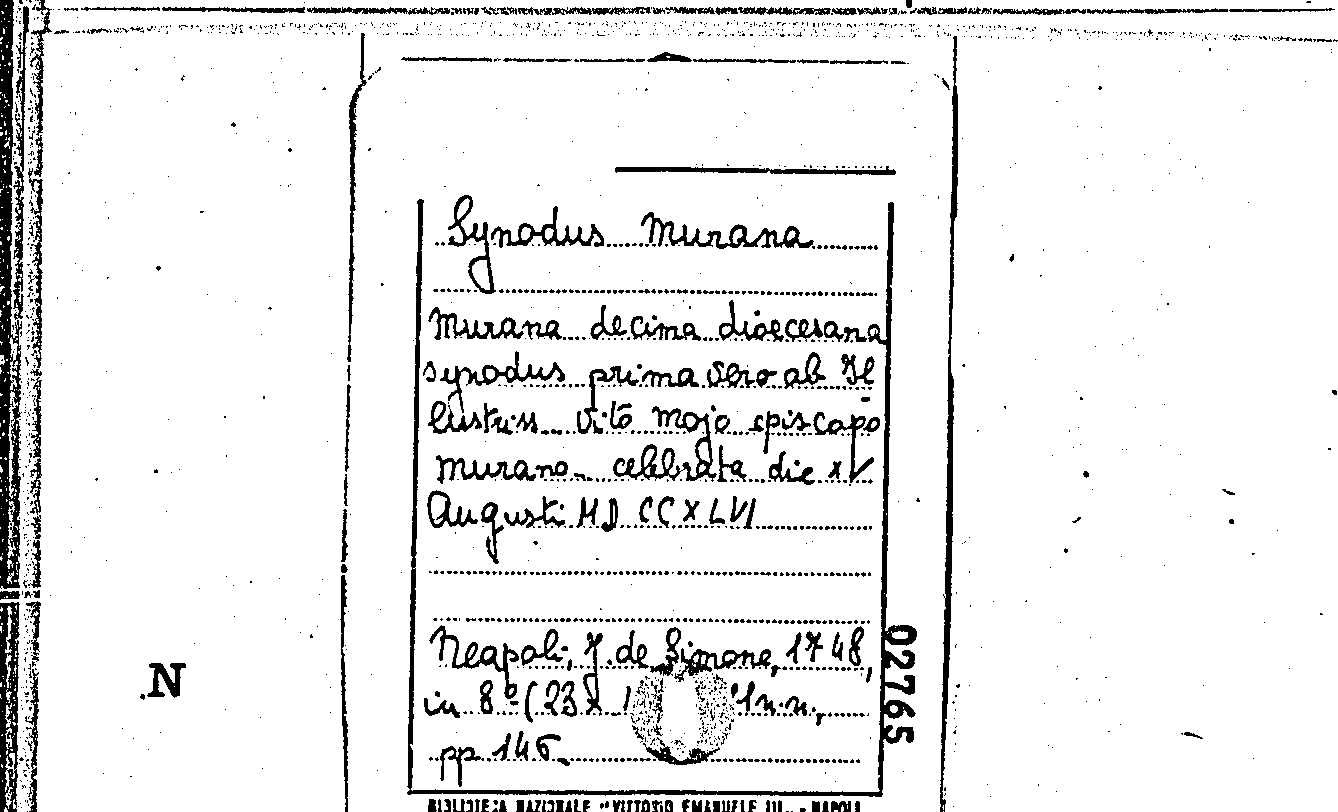 Synodus Murana
Murana decima dioecesana
synodus prima vero ab Il
lustriss. Vito Mojo episcopo
Murano celebrata die XV
Augusti MDCCXLVI
Neapoli, J. de Simone, 1748,
in 8º (23x n.n.,
pp 146.
02765
N
BIBLIOTECA NAZIONALE "VITTORIO EMANUELE III" - NAPOLI